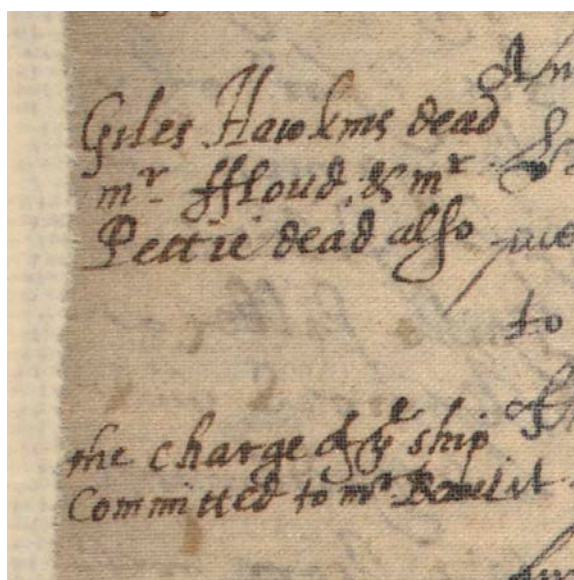 Giles Hawkins dead
mr ffloud, & mr
Pettie dead also
to
the charge of ye ship
Committed to mr